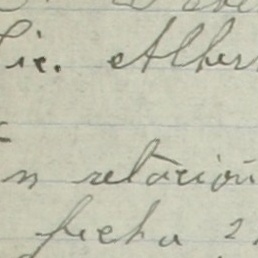 Lic. Alber
n relación
fecha 2